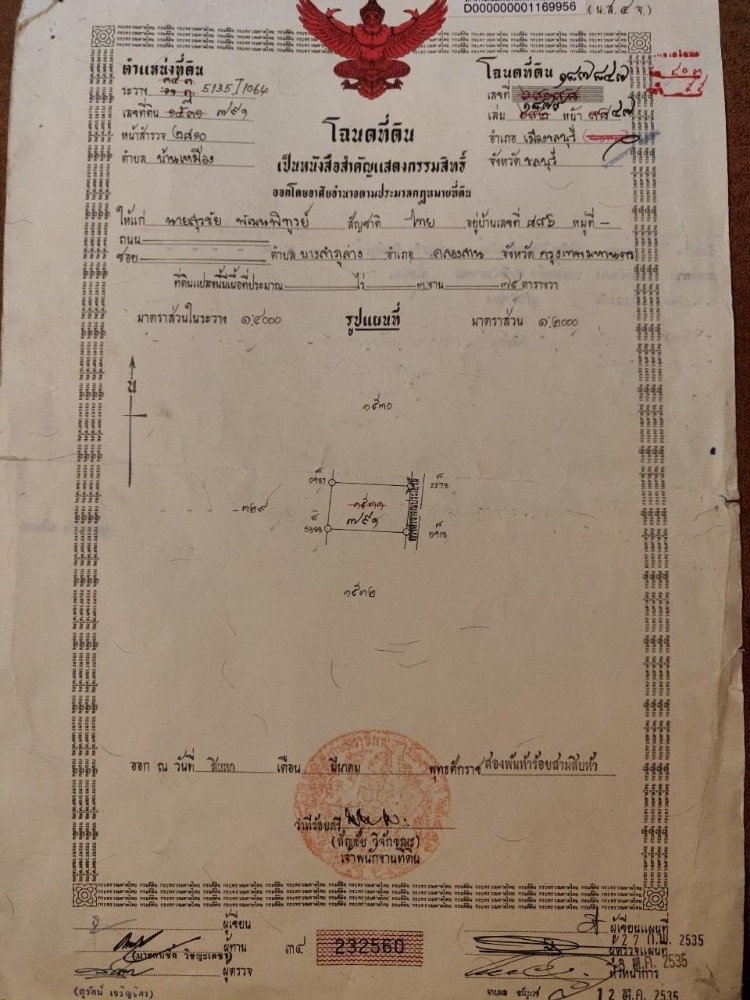 D000000001169956 (น.ส.๔ จ.)
ตำแหน่งที่ดิน
ระวาง 5135 I 1064
เลขที่ดิน ๑๕๓๑ ๗๙๑
หน้าสำรวจ ๒๘๑๐
ตำบล บ้านเหมือง
โฉนดที่ดิน
เลขที่ ๑๘๗๘๔๗
เล่ม ๑๘๗๙ หน้า ๔๗
อำเภอ เมืองชลบุรี
จังหวัด ชลบุรี
โฉนดที่ดิน
เป็นหนังสือสำคัญแสดงกรรมสิทธิ์
ออกโดยอาศัยอำนาจตามประมวลกฎหมายที่ดิน
ให้แก่ นายสุรชัย พัฒนพิฑูรย์ สัญชาติ ไทย อยู่บ้านเลขที่ ๘๘๖ หมู่ที่ –
ถนน
ซอย ตำบล บางลำภูล่าง อำเภอ คลองสาน จังหวัด กรุงเทพมหานคร
ที่ดินแปลงนี้มีเนื้อที่ประมาณ ไร่ ๓ งาน ๗๕ ตารางวา
มาตราส่วนในระวาง ๑:๔๐๐๐ รูปแผนที่ มาตราส่วน ๑:๒๐๐๐
น
๑๕๓๐
๓๒๙
๑๕๓๑
๗๙๑
2278
5913
๑๕๓๒
ออก ณ วันที่ สิบหก เดือน มีนาคม พุทธศักราช สองพันห้าร้อยสามสิบห้า
ว่าที่ร้อยตรี
(สัญชัย วิจักขณะ)
เจ้าพนักงานที่ดิน
ผู้เขียน
ผู้ทาน
ผู้ตรวจ
(สุรัตน์ เจริญจิตร)
๓๔ 232560
ผู้เขียนแผนที่
27 ก.พ. 2535
ผู้ตรวจแผนที่
หัวหน้าการ
12 มี.ค. 2535